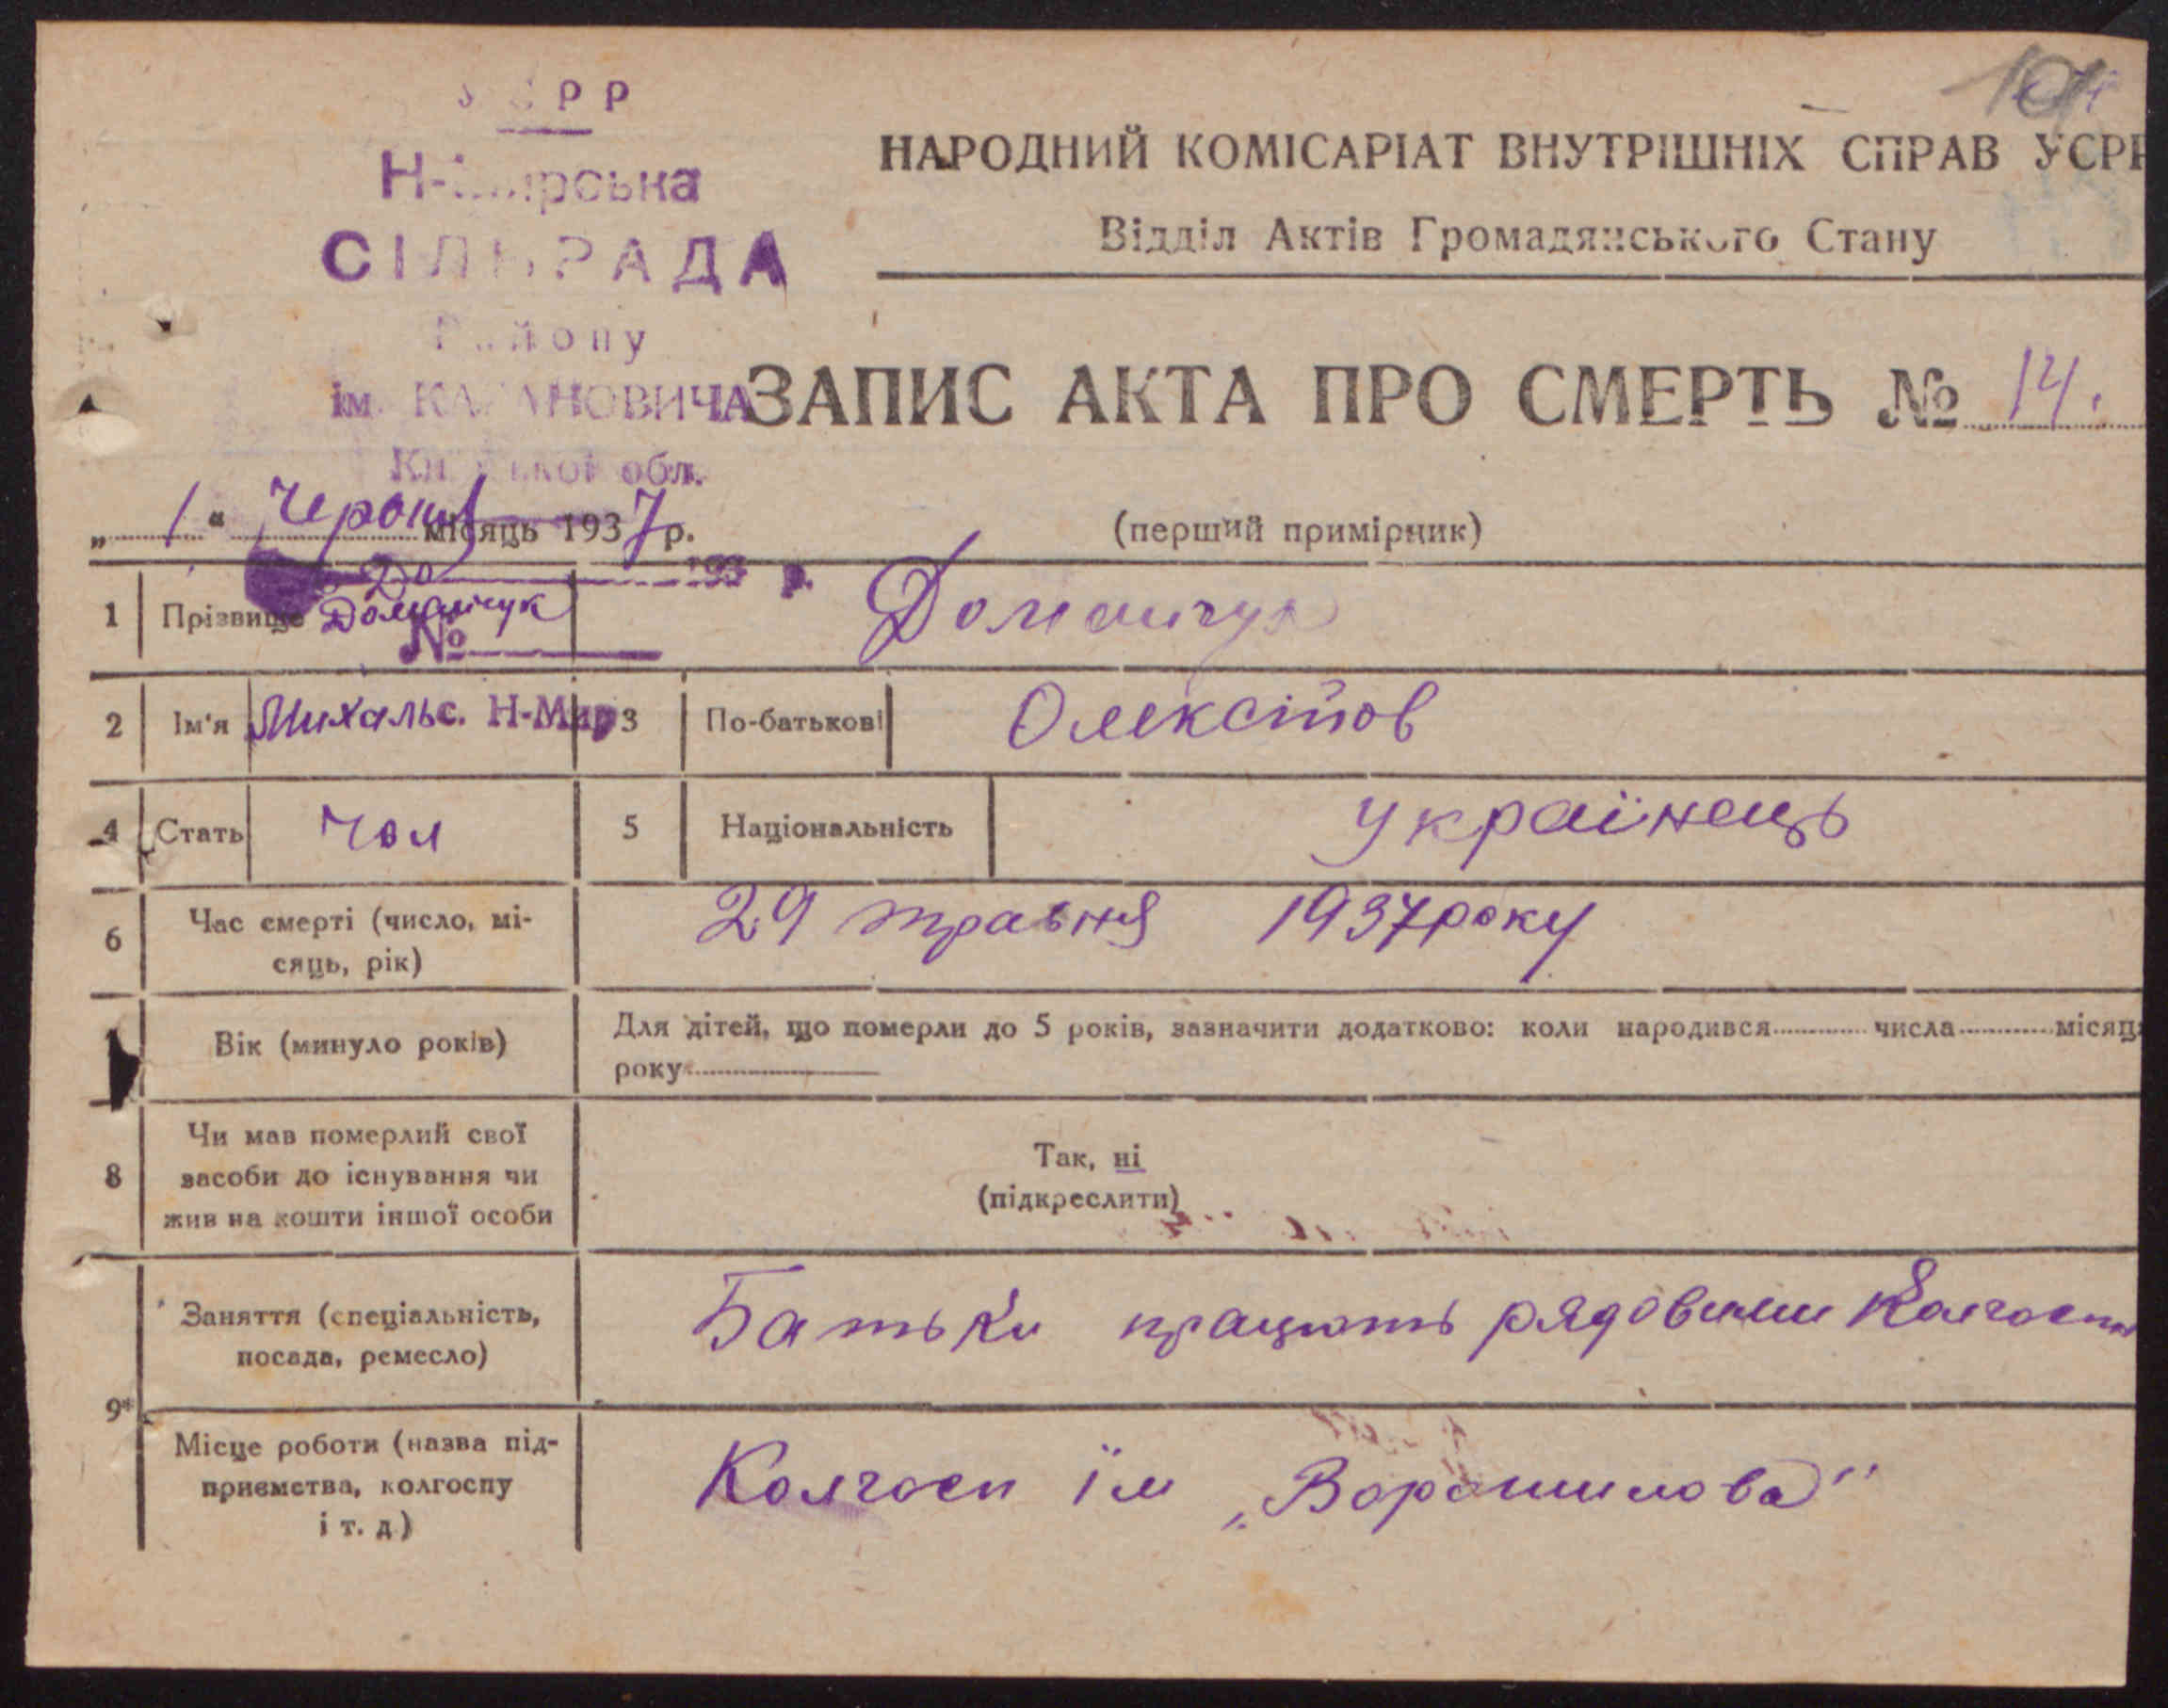 УСРР
Н-Мирська
СІЛЬРАДА
Району
ім. КАГАНОВИЧА
Київської обл.
НАРОДНИЙ КОМІСАРІАТ ВНУТРІШНІХ СПРАВ УСРР
Відділ Актів Громадянського Стану
ЗАПИС АКТА ПРО СМЕРТЬ № 14.
„ 1 “ Червня місяць 1937 р.
(перший примірник)
193 р.
1 Прізвище Доманчук Доманчук
№
2 Ім'я Михаль с. Н-Мир 3 По-батькові Олексійов
4 Стать Чол 5 Національність Українець
6 Час смерті (число, мі-
сяць, рік) 29 травня 1937 року
Вік (минуло років) Для дітей, що померли до 5 років, зазначити додатково: коли народився числа місяця
року
8 Чи мав померлий свої
засоби до існування чи
жив на кошти іншої особи
Так, ні
(підкреслити)
9* Заняття (спеціальність,
посада, ремесло) Батьки працюють рядовими
Місце роботи (назва під-
приємства, колгоспу
і т. д.) Колгосп їм „Ворошилова“